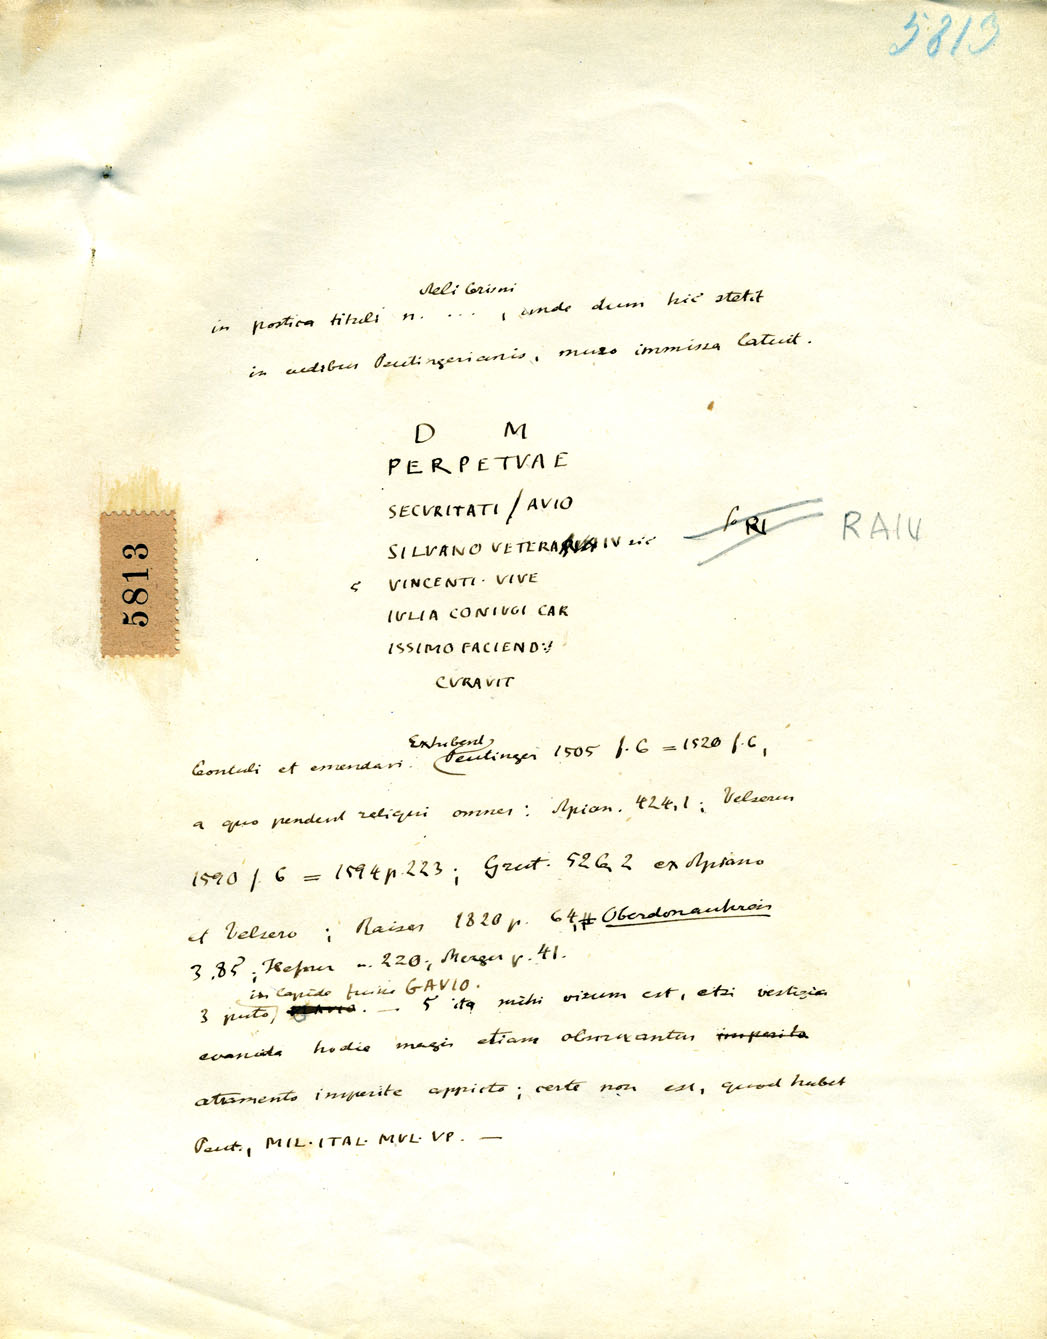 5813
Aeli
in postica tituli n. . . . , unde dum hic stetit
in aedibus Peutingerianis, muro immissa latuit.
D M
PERPETVAE
SECVRITATI / AVIO
SILVANO VETERA IV sic RI RAIV
5 VINCENTI · VIVE
IVLIA CONIVGI CAR
ISSIMO FACIEND
CVRAVIT
Exhibent
Contuli et emendavi. Peutinger 1505 f. 6 = 1520 f. 6,
a quo pendent reliqui omnes : Apian. 424,1 ; Velserus
1590 f. 6 = 1594 p. 223 ; Grut. 526, 2 ex Apiano
et Velsero ; Raiser 1820 p. 64, Oberdonaukreis
3. 85 ; Hefner 220 ; Mezger p. 41.
in lapide fuisse GAVIO.
3 puto, — 5 ita mihi visum est, etsi vestigia
evanida hodie magis etiam obscurantur imperito
atramento imperite appicto ; certe non est, quod habet
Peut., MIL·ITAL·MVL·VP. —
5813